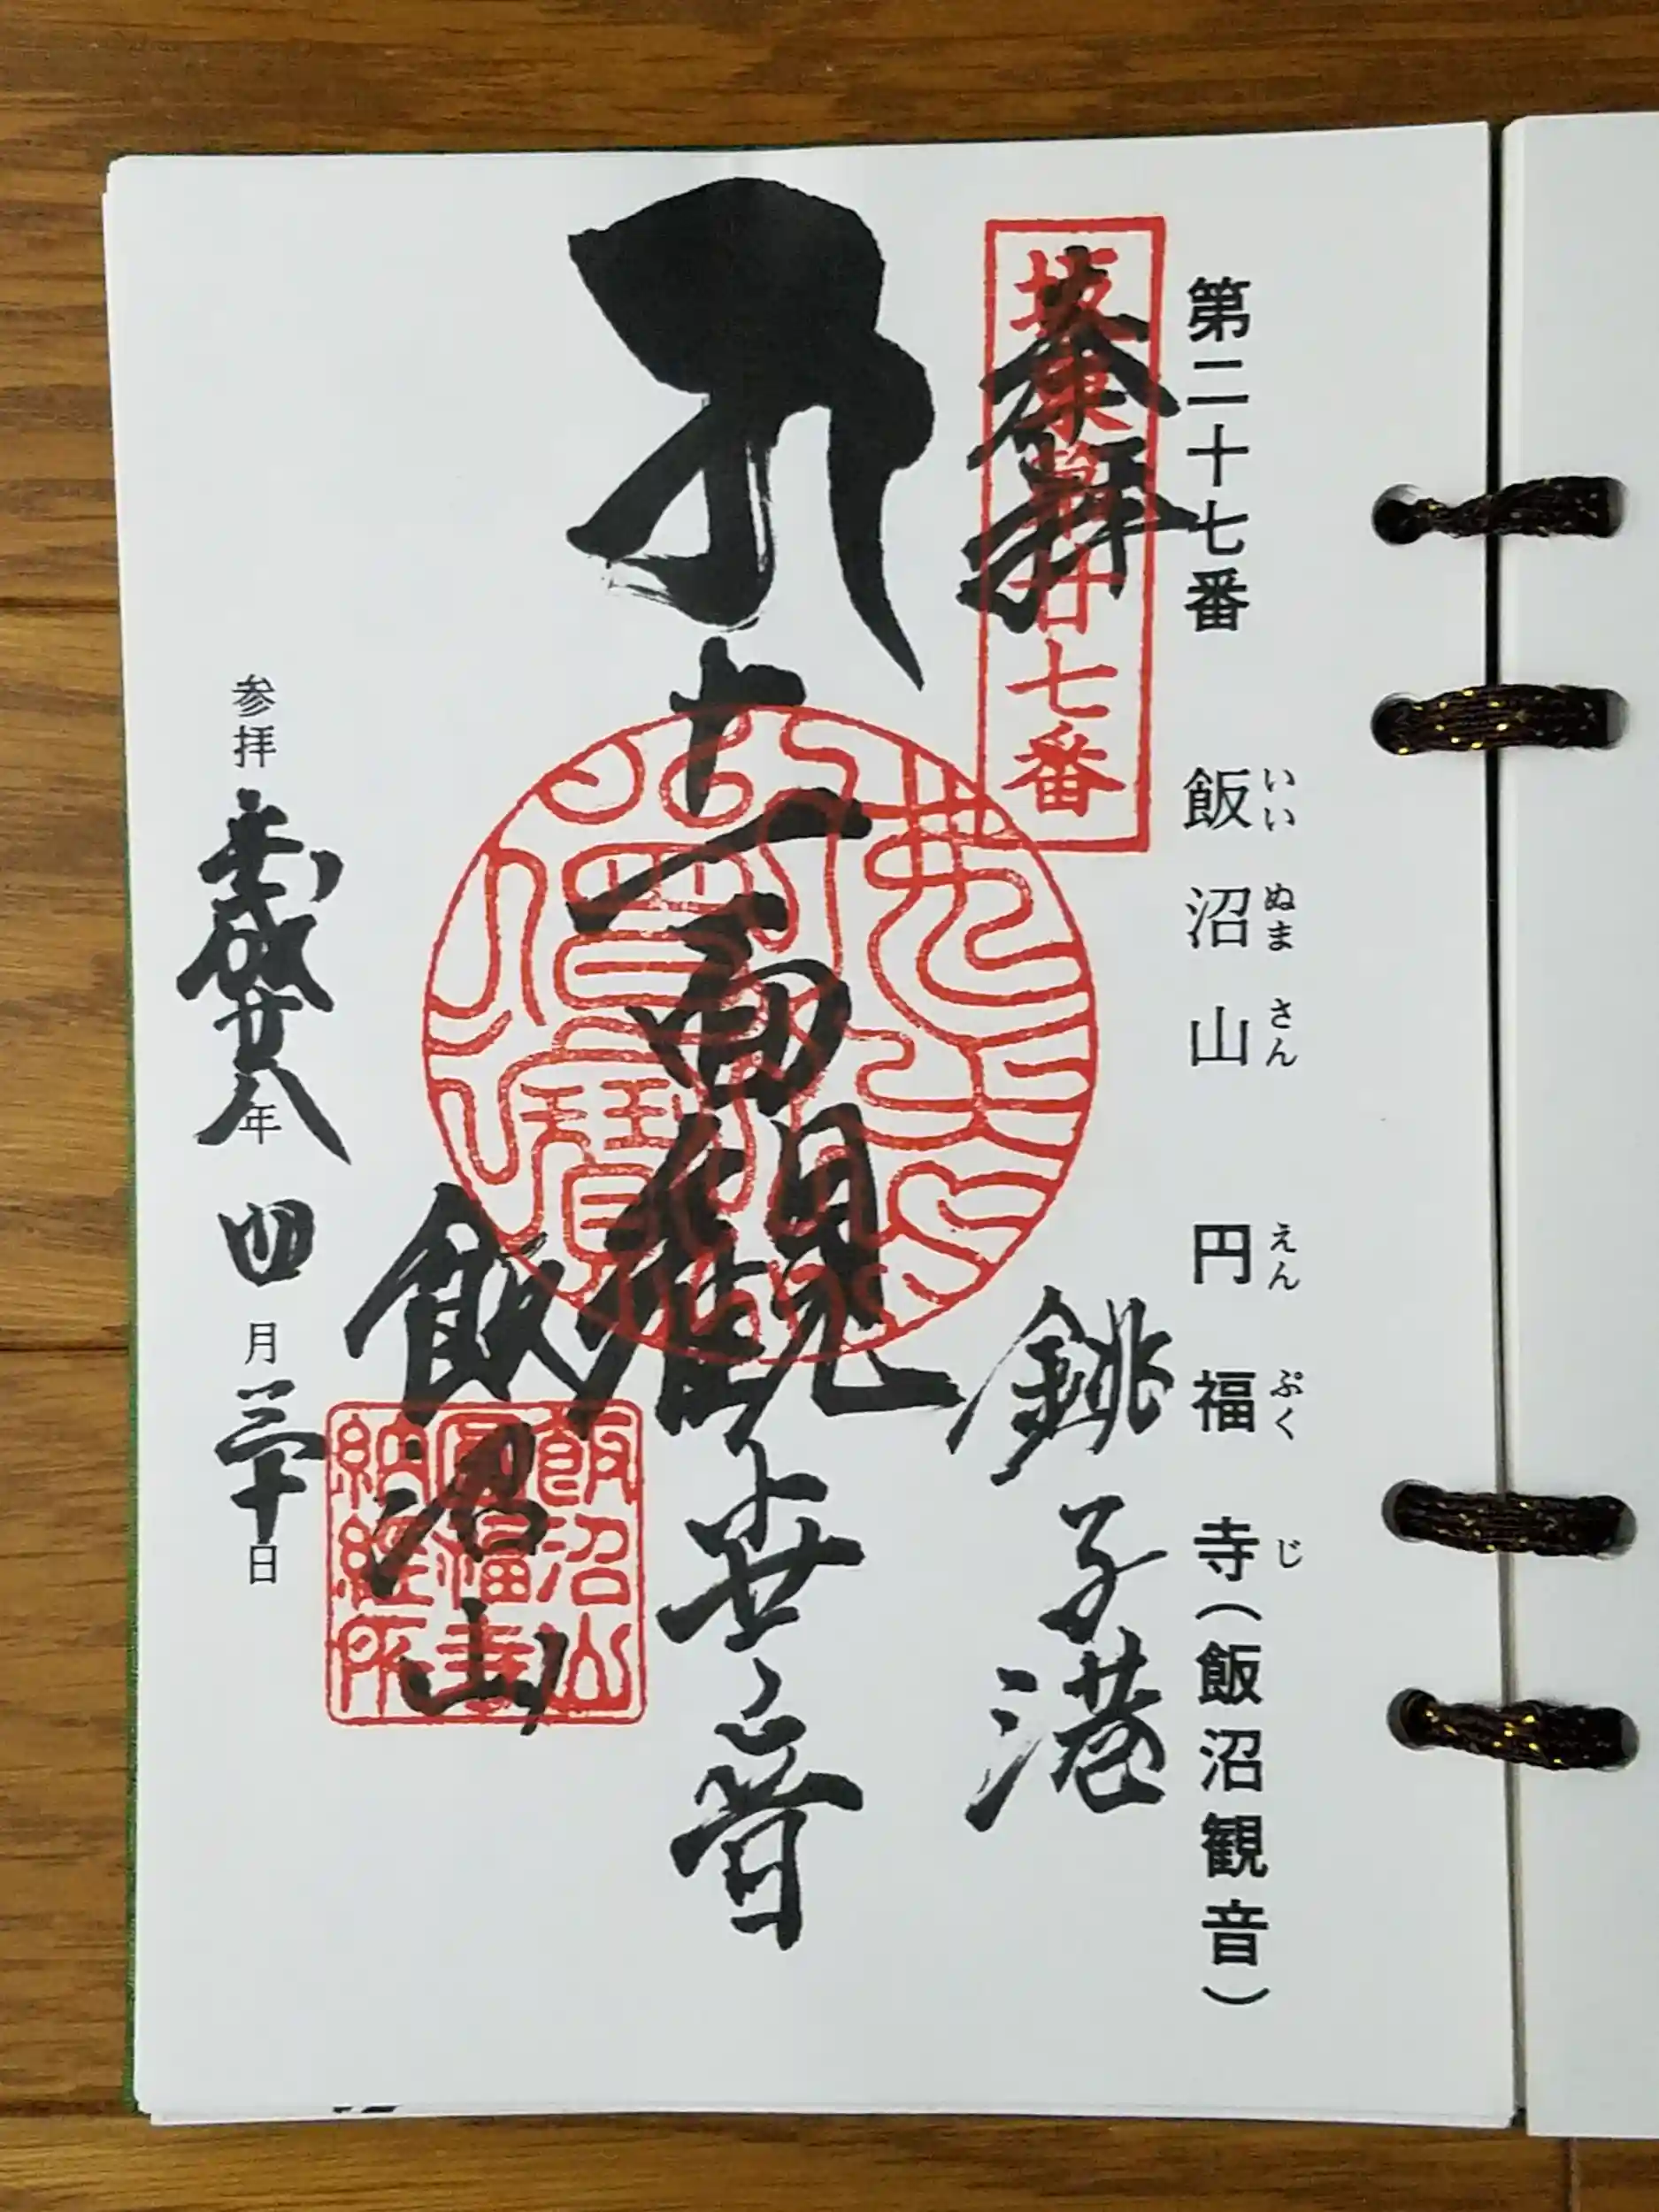 第二十七番 飯沼山 円福寺(飯沼観音)
いいぬまさん えんぷくじ
坂東第廿七番
奉拝
銚子港
十一面観世音
飯沼山
飯沼山
円福寺
納経所
参拝 平成廿八年 四月三十日